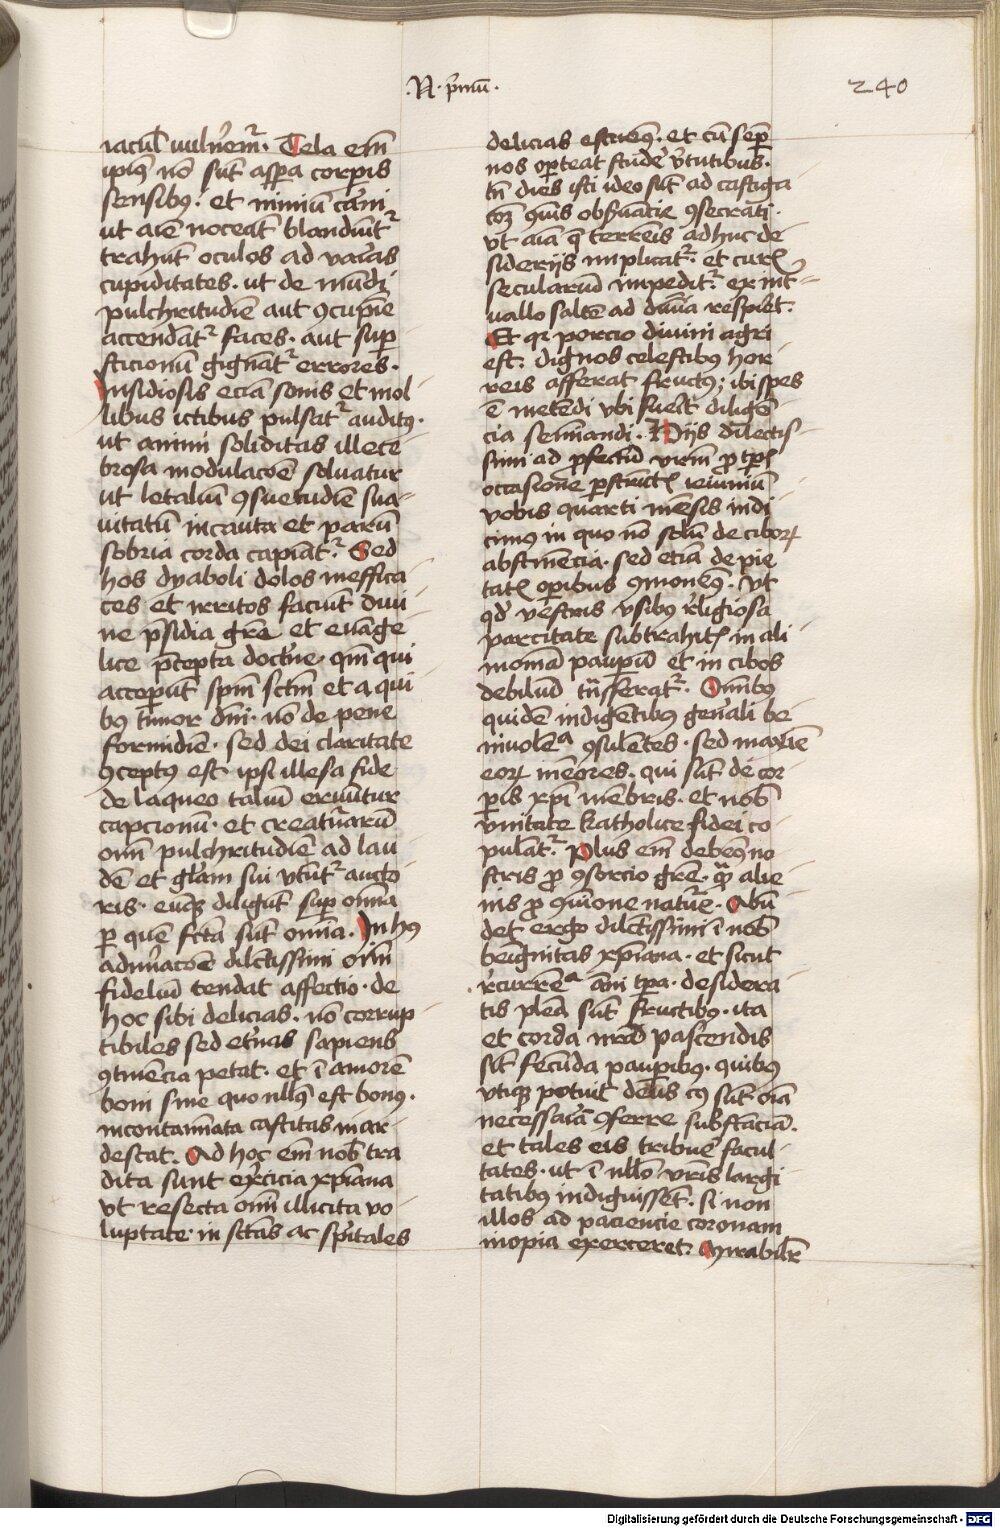 .N. p̄mū.
240
iacul' vuln̄em̄ꝛ. Tela em̄
ipiꝰ nō sūt aspa corpis
sensibꝰ. et nimiū cānī
ut aīe noceāt blandiūtꝛ
trahūt oculos ad varias
cupiditates. ut de mūdi
pulchritudīe aut ꝯcupīe
accendātꝛ faces. aut sup
sticionū gignātꝛ errores.
Insidiosis eciā sonis et mol
libus ictibus pulsātꝛ auditꝰ.
ut animi soliditas illece
brosa modulacōe soluatur
ut letaliū ꝯsuetudīe sua
uitatū incauta et parū
sobria corda capiātꝛ. Sed
hos dyaboli dolos ineffica
ces et irritos faciūt diui
ne p̄sidia grē et euāge
lice p̄cepta doct'ne. qm̄ qui
acceperūt spm̄ sctm̄ et a qui
bꝰ timor dn̄i. nō de pene
formidīe. sed dei claritate
ꝯceptꝰ est ipsi illesa fide
de laqueo taliū eruūtur
capcionū. et creat'arū
om̄ī pulchritudīe ad lau
dē et gl'am sui vtūtꝛ aucto
ris. eūqꝫ diligūt sup om̄ia
ꝑ quē fctā sūt om̄ia. In hꝰ
admīacōe dilcīssimi om̄ī
fideliū tendat affectio. de
hoc sibi delicias. nō corrup
tibiles sed et'nas sapiens
ꝯtinēcia petat. et ī amorē
boni sine quo nllꝰ est bonꝰ.
incontamīata castitas inar
descat. Ad hoc em̄ nob̄ tra
dita sunt ex'cicia xpiana
vt resecta om̄ī illicita vo
luptate. in sctās ac sp̄itales
delicias estuemꝰ. et cū semp
nos oporteat studē v'tutibus.
tn̄ dies isti ideo sūt ad castiga
coīꝫ ꝯmis obs'uācie ꝯsecrati.
vt aīa q̄ terreis adhuc de
siderijs implicatꝛ. et curis
seculariū impeditꝛ ex int
uallo saltē ad diuīa respiret.
Et qꝛ porcio diuini agri
est. dignos celestibꝰ hor
reis afferat fructus; ibi spes
ē metēdi vbi fuerit diligē
cia semīandi. Hijs dilectis
simi ad ꝓfectū vrm̄ ꝓ tpis
occasione ꝑstructis ieiuniū
vobis quarti mēsis indi
cimꝰ in quo nō solū de ciboꝝ
abstinēcia. sed etiā de pie
tatis operibus ꝯmonemꝰ. vt
qd' vestris vsibꝰ religiosa
parcitate subtrahitis in ali
moniā paupeꝝ et in cibos
debiliū trāsferatꝛ. Omibꝰ
quidē indigētibus gen'ali be
niuolēᵃ ꝯsulentes. sed maxīe
eoꝝ mēores. qui sūt de cor
pis xpi mēbris. et nob̄
vnitate katholice fidei co
pulātꝛ. Plus em̄ debemꝰ no
stris ꝓ ꝯsorcio grē. qm̄ alie
nis ꝓ ꝯmīone nature. Abū
det ergo dilctissimi ī nob̄
benignitas xpiana. et sicut
r'currēᵃ āni tpa. desidera
tis plēa sūt fructibꝰ. ita
et corda nr̄a pascendis
sīt fecūda paupibꝰ. quibꝰ
vtiqꝫ potuit deus cꝰ sūt oīa
necessaria ꝯferre substāciā.
et tales eis tribuē facul
tates. ut ī nllō vr̄is largi
tatibꝰ indiguissēt. si non
illos ad paciencie coronam
inopia exerceret. Mirabil'r
Digitalisierung gefördert durch die Deutsche Forschungsgemeinschaft - DFG